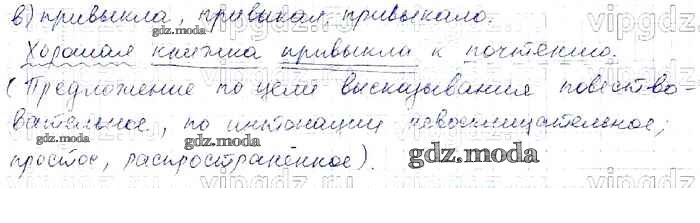 в) привыкла, привыкал, привыкало.
Хорошая книжка привыкли к почтению.
(Предложение по цели высказывания повество-
вательное, по интонации невосклицательное,
простое, распространённое).
gdz.moda
gdz.moda
gdz.moda
gdz.moda